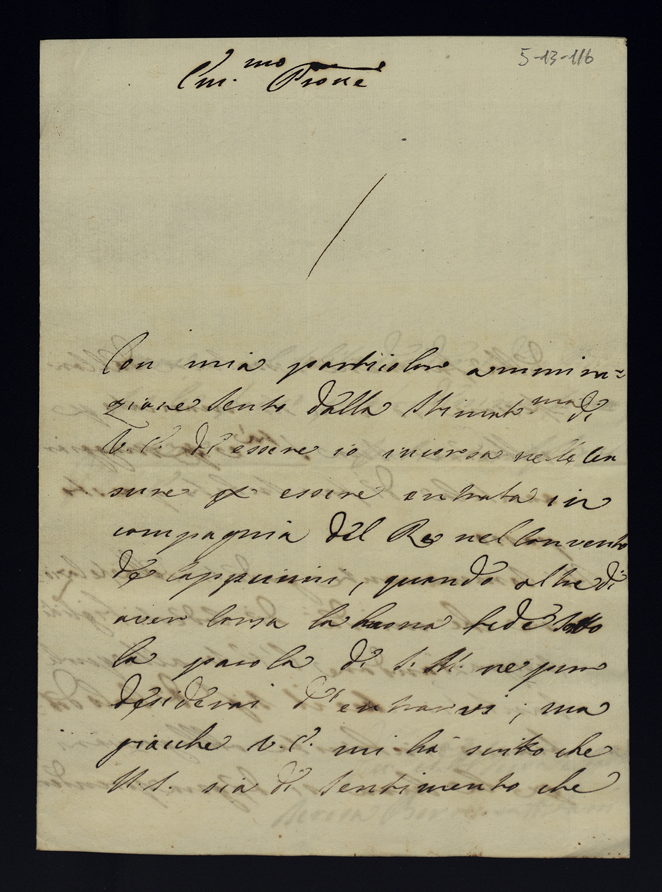 5-13-116
Em.mo Prone
Con mia particolar ammira=
zione sento dalla Stimat.ma di
V. E. di essere io incorsa nelle Cen
sure p essere entrata in
compagnia del Re nel Convento
de Cappuccini, quando oltre di
aver corsa la buona fede sotto
la parola di S. M. ne pure
desiderai d'entrarvi; ma
giacche V. E. mi ha scritto che
N. S. sia di sentimento che